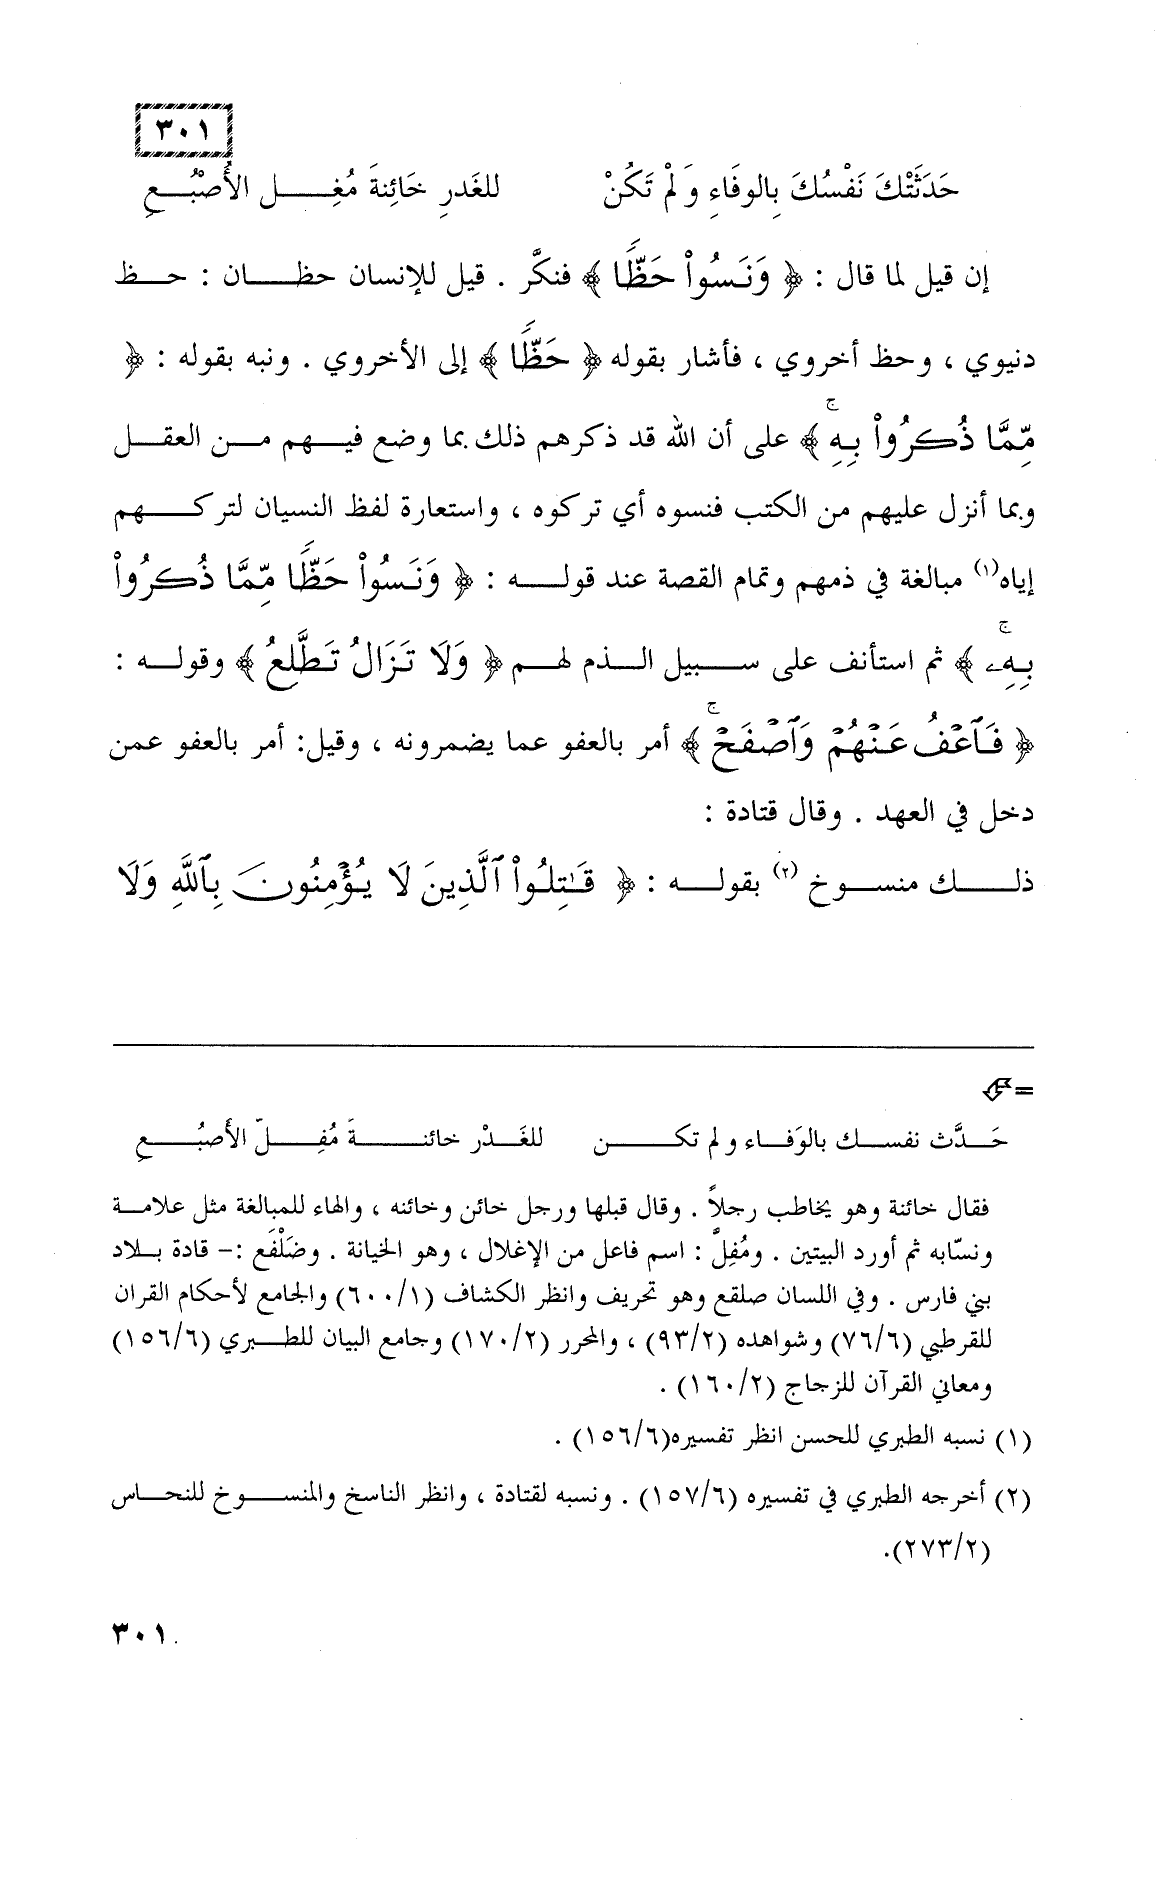 ٣٠١
حَدَثَتْكَ نَفْسُكَ بِالوفَاءِ وَ لَمْ تَكُنْ للغَدرِ خَائِنةَ مُغِـــل الأُصْبُـــعِ
إن قيل لما قال : ﴿ وَنَسُواْ حَظًّا ﴾ فنكَّر . قيل للإنسان حظـــان : حـــظ
دنيوي ، وحظ أخروي ، فأشار بقوله ﴿ حَظًّا ﴾ إلى الأخروي . ونبه بقوله : ﴿
مِّمَّا ذُكِرُواْ بِهِۚ ﴾ على أن الله قد ذكرهم ذلك بما وضع فيـــهم مـــن العقـــل
وبما أنزل عليهم من الكتب فنسوه أي تركوه ، واستعارة لفظ النسيان لتركـــهم
إياه(١) مبالغة في ذمهم وتمام القصة عند قولـــه : ﴿ وَنَسُواْ حَظًّا مِّمَّا ذُكِرُواْ
بِهِۦۚ ﴾ ثم استأنف على ســـبيل الـــذم لهـــم ﴿ وَلَا تَزَالُ تَطَّلِعُ ﴾ وقولـــه :
﴿ فَٱعْفُ عَنْهُمْ وَٱصْفَحْۚ ﴾ أمر بالعفو عما يضمرونه ، وقيل: أمر بالعفو عمن
دخل في العهد . وقال قتادة :
ذلـــك منســـوخ (٢) بقولـــه : ﴿ قَٰتِلُواْ ٱلَّذِينَ لَا يُؤْمِنُونَ بِٱللَّهِ وَلَا
=
حَـــدَّث نفســـك بالوَفـــاء و لم تكـــن للغَـــدْر خائنـــةَ مُغِـــلّ الأَصبُـــع
فقال خائنة وهو يخاطب رجلاً . وقال قبلها ورجل خائن وخائنه ، والهاء للمبالغة مثل علامـــة
ونسّابه ثم أورد البيتين . ومُغِلّ : اسم فاعل من الإغلال ، وهو الخيانة . وضَلْفَع :- قادة بـــلاد
بني فارس . وفي اللسان صلقع وهو تحريف وانظر الكشاف (٦٠٠/١) والجامع لأحكام القران
للقرطبي (٧٦/٦) وشواهده (٩٣/٢) ، والمحرر (١٧٠/٢) وجامع البيان للطـــبري (١٥٦/٦)
ومعاني القرآن للزجاج (١٦٠/٢) .
(١) نسبه الطبري للحسن انظر تفسيره(١٥٦/٦) .
(٢) أخرجه الطبري في تفسيره (١٥٧/٦) . ونسبه لقتادة ، وانظر الناسخ والمنســـوخ للنحـــاس
(٢٧٣/٢).
٣٠١